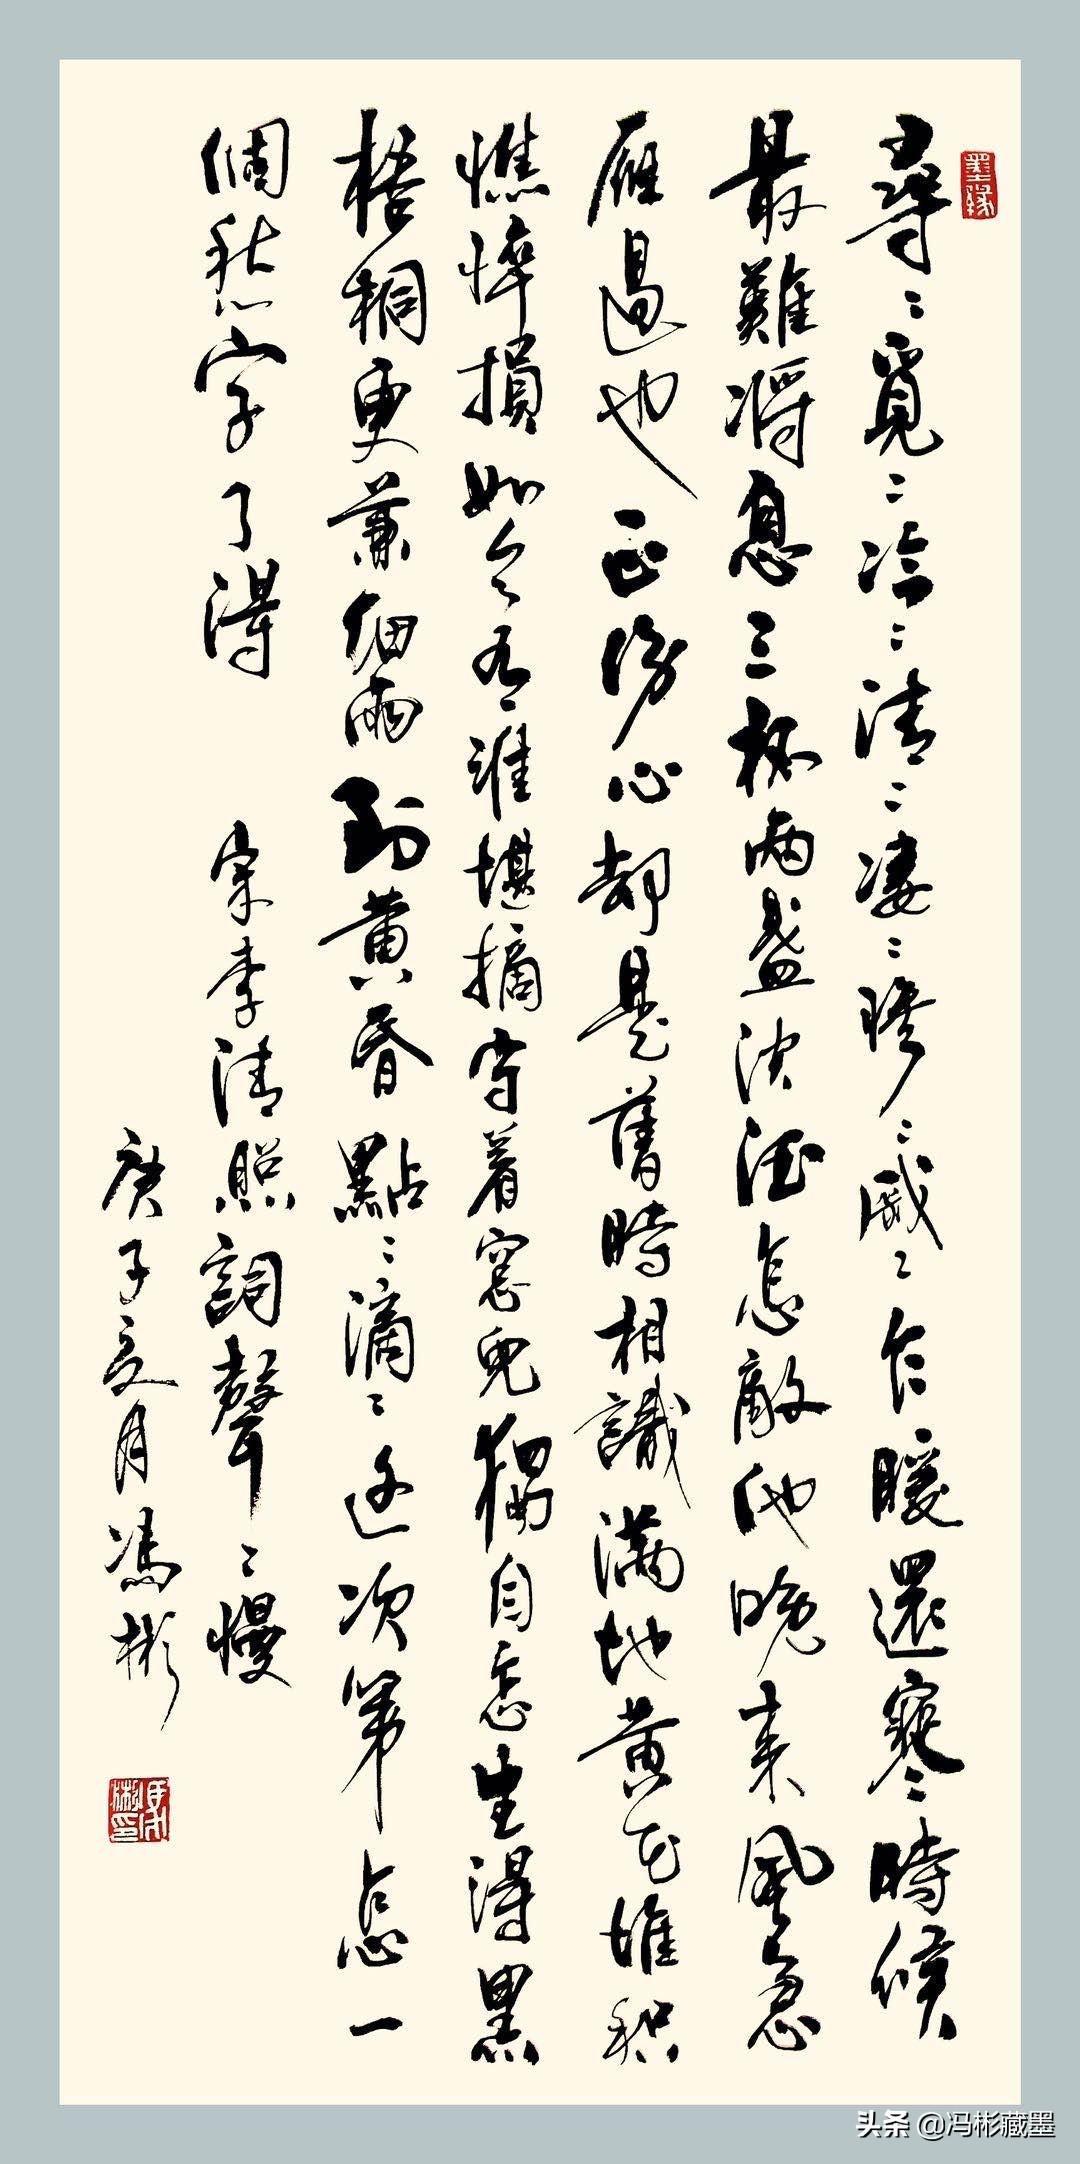 墨緣
尋〻覓〻冷〻清〻凄〻慘〻戚〻乍暖還寒時候
最難將息三杯兩盞淡酒怎敵他晚來風急
雁過也正傷心却是舊時相識滿地黃花堆積
憔悴損如今有誰堪摘守着窗兒獨自怎生得黑
梧桐更兼細雨到黃昏點〻滴〻這次第怎一
個愁字了得 宋李清照詞聲〻慢
庚子夏月馮彬
头条 @冯彬藏墨